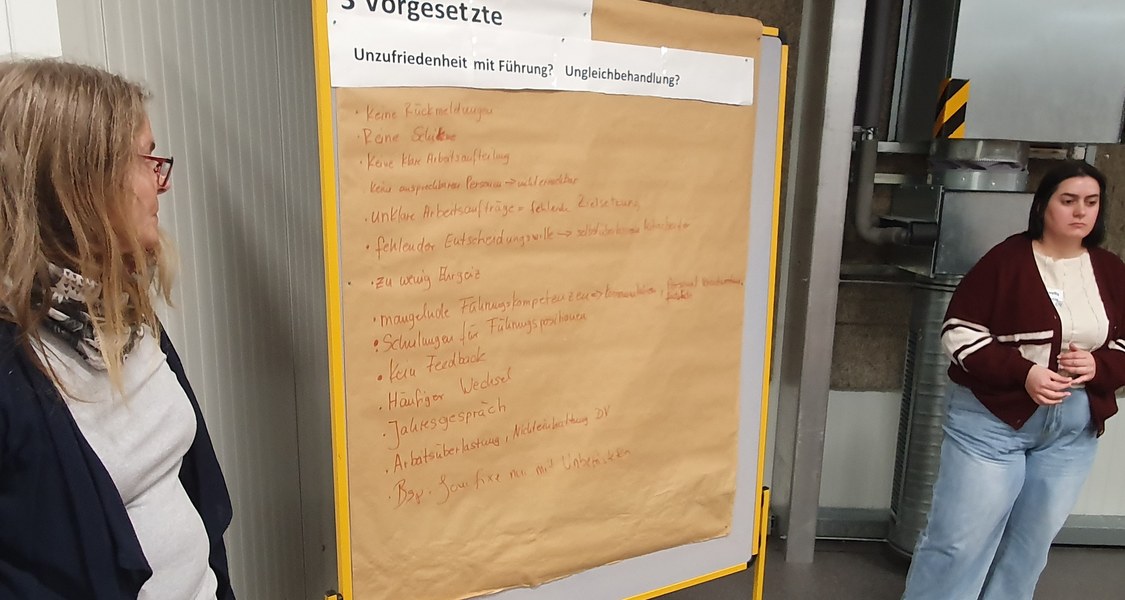 3 Vorgesetzte
Unzufriedenheit mit Führung? Ungleichbehandlung?
· Keine Rückmeldungen
· Reine Schikane
· Keine Klare Arbeitsaufteilung
Kein ansprechbares Personen → nicht erreichbar
· unklare Arbeitsaufträge = fehlende Zielsetzung
· fehlender Entscheidungswille →
· zu wenig Ehrgeiz
· mangelnde Führungskompetenzen → Kommunikation,
· Schulungen für Führungspositionen
· Kein Feedback
· Häufiger Wechsel
· Jahresgespräch
· Arbeitsüberlastung, Nichteinhaltung DV
· Bsp. Jour fixe nur mit